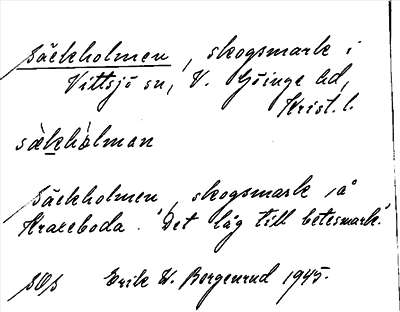 Säckholmen, skogsmark i
Vittsjö sn, V. Göinge hd,
Krist. l.
sàkhòlman
Säckholmen, skogsmark å
Krareboda. 'Det låg till betesmark.'
Erik W. Bergenrud 1945.